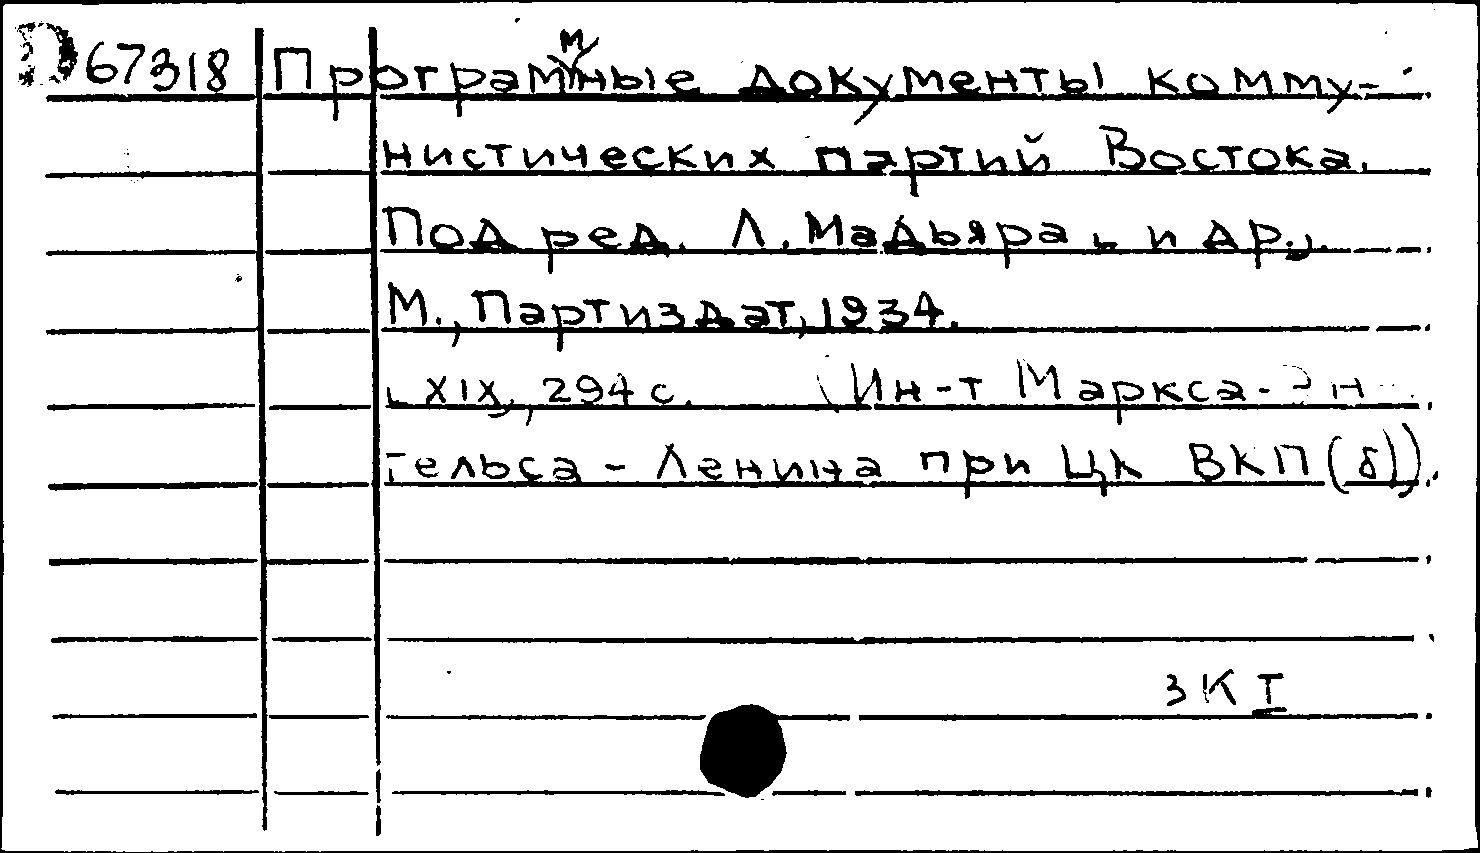 D67318 Программные документы комму-
нистических партий Востока.
Под ред. Л. Мадьяра и др.,
М., Партиздат, 1934.
XIX, 294 с. (Ин-т Маркса-Эн
гельса - Ленина при ЦК ВКП(б)).
3 К I